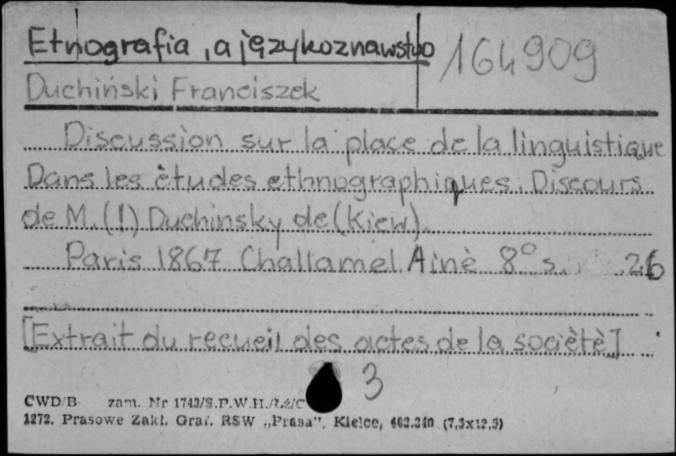 Etnografia, a językoznawstwo
164909
Duchiński Franciszek
Discussion sur la place de la linguistique
Dans les ètudes ethnographiques. Discours
de M.(!) Duchinsky de (Kiew).
Paris 1867 Challamel Ainè 8° s. 26
[Extrait du recueil des actes de la socètè]
3
CWD/B zam. Nr 1743/S.P.W.H./Łź/C
1272. Prasowe Zakł. Graf. RSW „Prasa", Kielce, 403.340 (7,5x12,5)